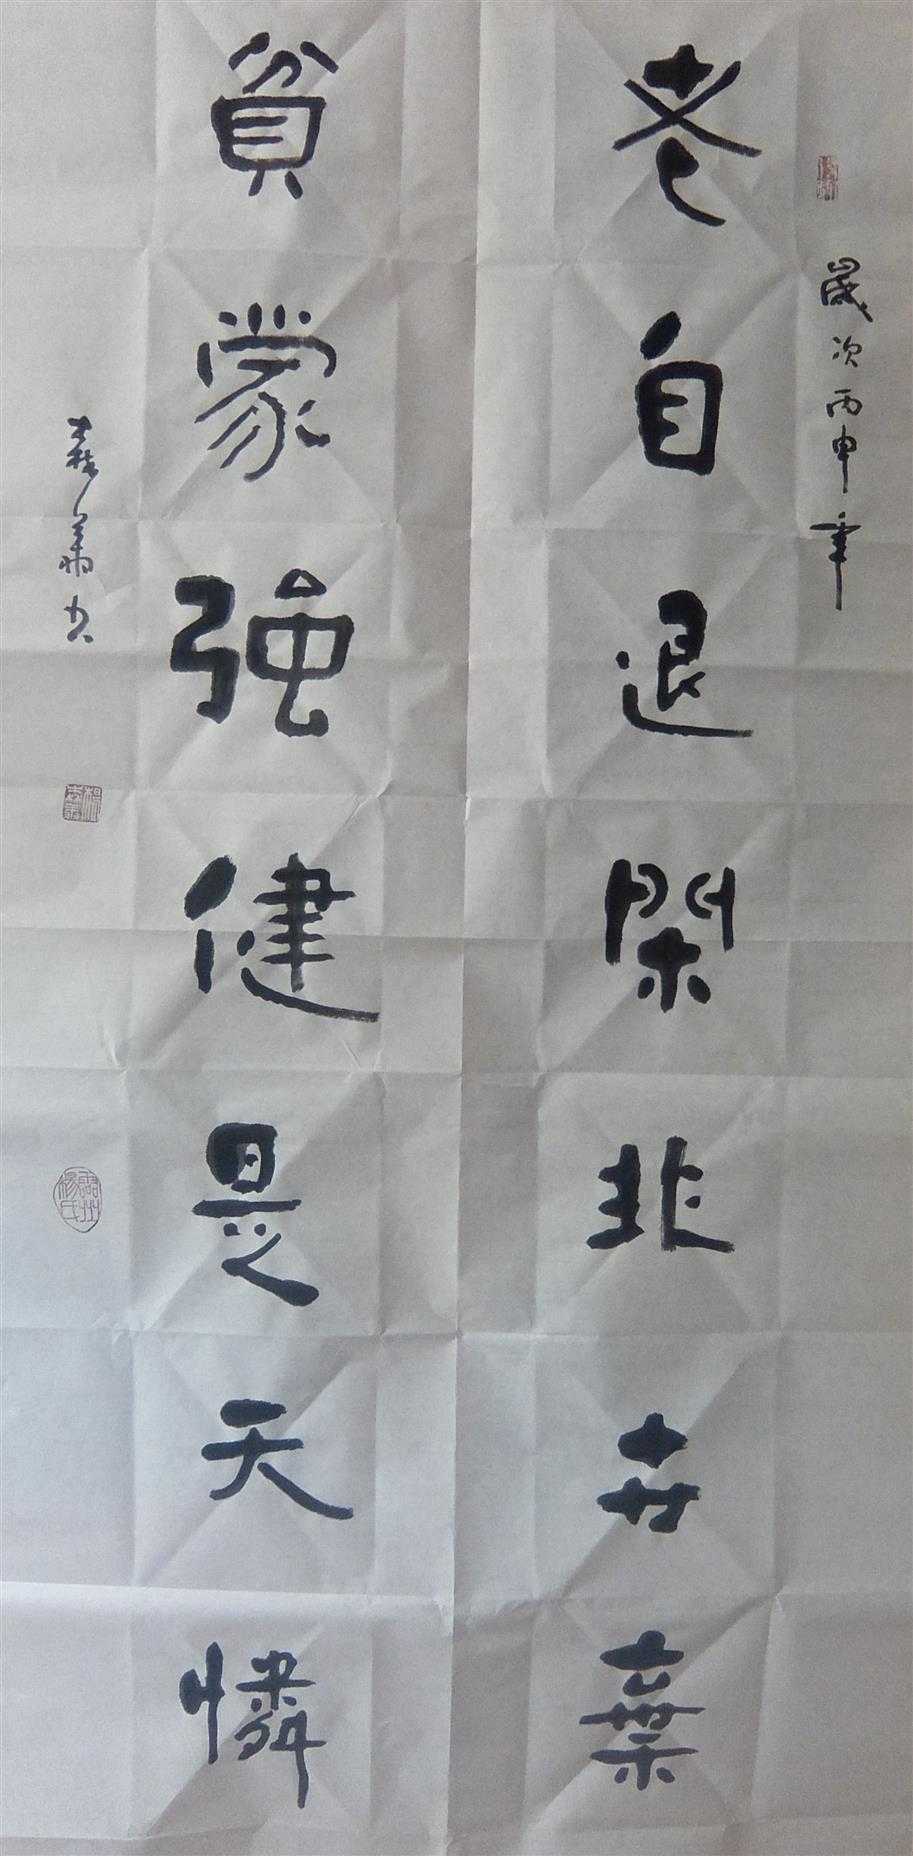 歲次丙申年
老自退閑非卋棄
貧蒙強健是天憐